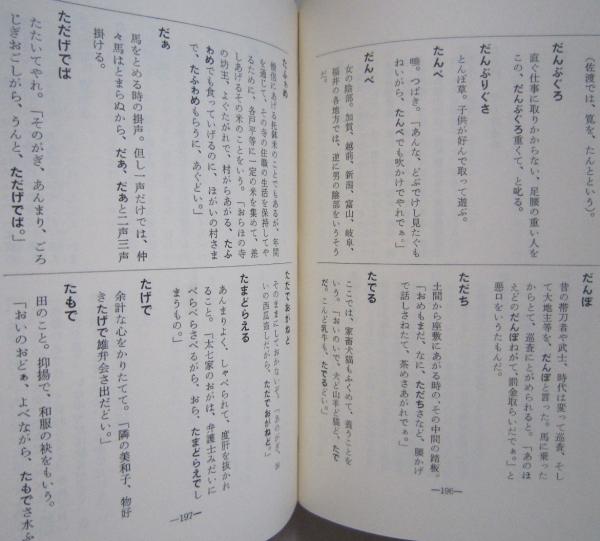 (佐渡では、筧を、たんとという)。
だんぶぐろ
直ぐ仕事に取りかからない、足腰の重い人を
この、だんぶぐろ重くて、と叱る。
だんぶりぐさ
とんぼ草。子供が好んで取って遊ぶ。
たんぺ
唾。つばき。「あんな、どぶでけし見たぐも
ねがら、たんぺでも吹かけでやれでぁ。」
だんべ
女の陰部。加賀、越前、新潟、富山、岐阜、
福井の各地方では、逆に男の陰部をいうそう
だ。
だんぽ
昔の帯刀者や武士、時代は変って巡査、そし
て大地主等を、だんぽと言った。馬に乗った
からとて、巡査にとがめられると。「あのほ
えどのだんぽねがて、罰金取らいだでぁ。」と
悪口をいうたもんだ。
ただち
土間から座敷にあがる時の、その中間の踏板。
「おめもまだ、なに、ただちさなど、腰かげ
で話しさねたて、茶めさあがれでぁ。」
たでる
ここでは、家畜犬猫もふくめて、養うことを
いう。「おいのいで、犬ど山羊ど猫ど、たで
だ。こんど乳牛も、たでるどい。」
―196―
たふゎめ
僧侶にあげる托鉢米のことでもあるが、年間
を通じて、その寺の住職の生活を保持してや
るために、各戸平等に一定の米を集めて、差
しあげるその米のことをいう。「おらほの寺
の坊主、よぐたがれで、村がらあがる、たふ
ゎめでも食っていげるのに、ほがいの村さま
で、たふゎめもらうに、あぐどい。」
だぁ
馬をとめる時の掛声。但し一声だけでは、仲
々馬はとまらぬから、だぁ、だぁと二声三声
掛ける。
ただげでは
たたいてやれ。「そのがぎ、あんまり、ごろ
じぎおごしがら、うんと、ただげでは。」
ただておがねと
そのままにしておかないと。「あのがぎ、
いの西瓜盗したがら、ただておがねと。」
たまどらえる
あんまりよく、しゃべられて、度肝を抜かれ
ること。「太七家のおがは、弁護士みだいに
べらべらさべるがら、おら、たまどらえでし
まうもの。」
たげで
余計な心をかりたてて。「隣の美和子、物好
きたげで雄弁会さ出だどい。」
たもで
田のこと。抑揚で、和服の袂をもいう。
「おいのおどぁ、よべながら、たもでさ水ふ
―197―